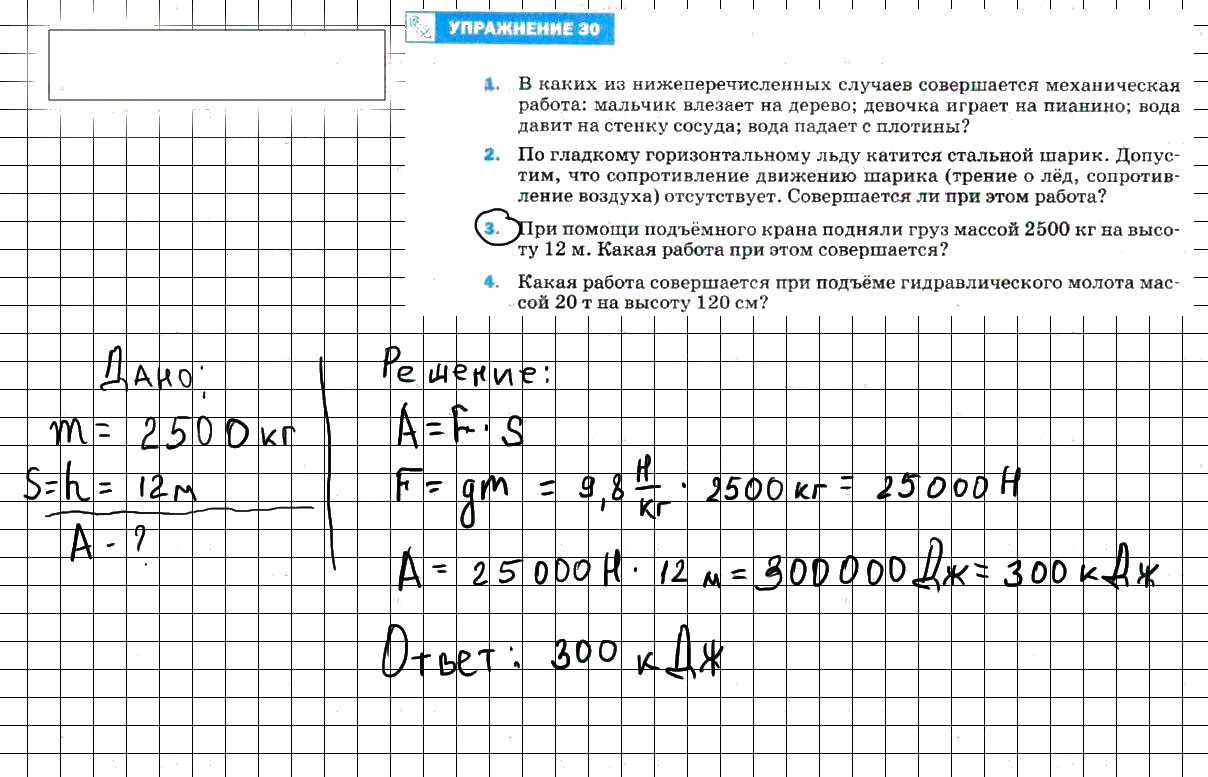 УПРАЖНЕНИЕ 30
1. В каких из нижеперечисленных случаев совершается механическая
работа: мальчик влезает на дерево; девочка играет на пианино; вода
давит на стенку сосуда; вода падает с плотины?
2. По гладкому горизонтальному льду катится стальной шарик. Допус-
тим, что сопротивление движению шарика (трение о лёд, сопротив-
ление воздуха) отсутствует. Совершается ли при этом работа?
3. При помощи подъёмного крана подняли груз массой 2500 кг на высо-
ту 12 м. Какая работа при этом совершается?
4. Какая работа совершается при подъёме гидравлического молота мас-
сой 20 т на высоту 120 см?
Дано:
m = 2500 кг
S = h = 12 м
A - ?
Решение:
A = F · S
F = gm = 9,8 Н/кг · 2500 кг = 25000 Н
A = 25000 Н · 12 м = 300000 Дж = 300 кДж
Ответ: 300 кДж